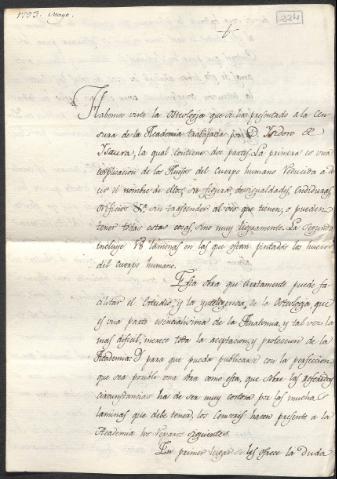 1793. Mayo.
224
Habemos visto la Osteologia que se ha presentado a la Cen-
sura de la Academia trabajada por D. Isidoro de
Isaura, la qual contiene dos partes. La primera es una
explicacion de los Huesos del Cuerpo humano reducida a de-
cir el nombre de ellos, su figura, desigualdades, Cavidades,
Orificios &c. sin trascender al uso que tienen, o pueden
tener todas estas cosas, sino muy ligeramente. La Segunda
incluye 18 laminas en las que estan pintados los huesos
del cuerpo humano.
Esta obra que ciertamente puede fa-
cilitar el Estudio, y la inteligencia de la Osteologia, que
es una parte esencialisima de la Anatomia, y tal vez la
mas dificil, merece toda la aceptacion, y proteccion de la
Academia. Y para que pueda publicarse con la perfeccion
que sea posible una obra como esta, que sobre las
circunstancias ha de ser muy costosa por las muchas
laminas que debe tener, los Censores hacen presente a la
Academia los reparos siguientes.
En primer lugar se les ofrece la Duda